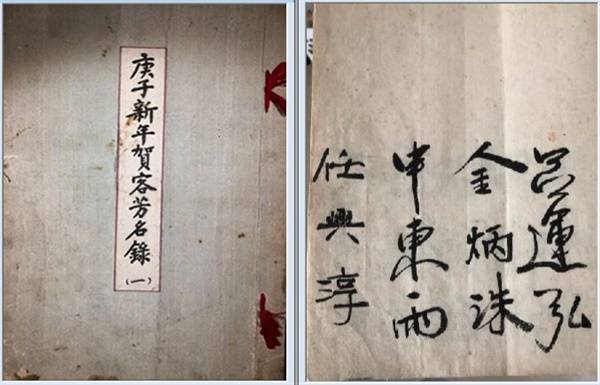 庚子新年賀客芳名錄
(一)
呂運弘
金炳洙
申東雨
任興淳